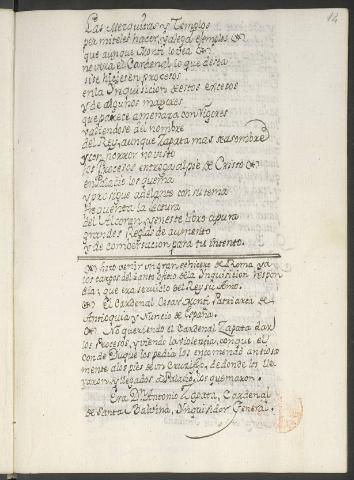 14
Las Mezquitas, y Templos
permiteles hacer, y alega exemplos
que aunque Monti lo vea
no vera el Cardenal lo que desea
si se hiciesen procesos
en la Inquisicion de estos excesos
y de algunos mayores
que parece amenaza con rigores
valiendose del nombre
del Rey, aunque Zapata mas se asombre
y con horror no visto
los Procesos entrega al pie de Cristo
en Palacio los quema
y prosigue adelante con su tema
frequenta la lectura
del Alcoran, y en este libro apura
grandes Reglas de aumento
y de combersacion para tu intento.
hizo venir un gran echicero de Roma, y a
los cargos del Santo Oficio de la Inquisicion respon
dia, que era servicio del Rey su Amo.
El Cardenal Cesar Monti Patriarca de
Antioquia, y Nuncio de España.
No queriendo el Cardenal Zapata dar
los Procesos, y viendo la violencia, con que el
Conde Duque los pedia los encomendò
mente a los pies de un Crucifijo, de donde los lle
varon, y llegados a Palacio, los quemaron.
Era Dn. Antonio Zapata, Cardenal
de Santa Balbina, Inquisidor General.